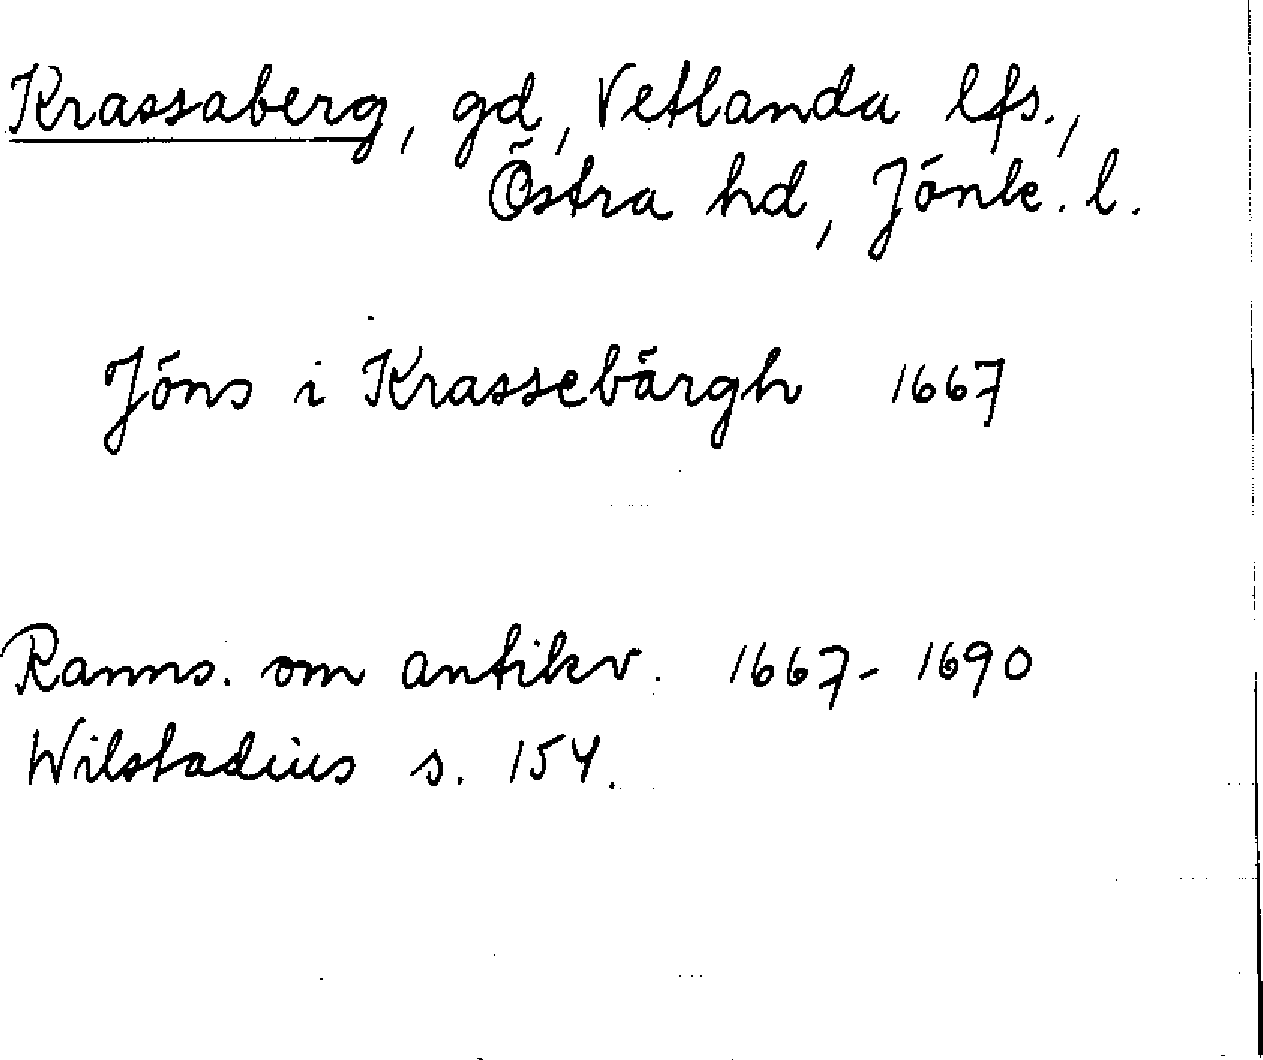 Krassaberg, gd, Vetlanda lfs.,
Östra hd, Jönk. l.
Jöns i Krassebärgh 1667
Ranns. om antikv. 1667-1690
Wilstadius s. 154.